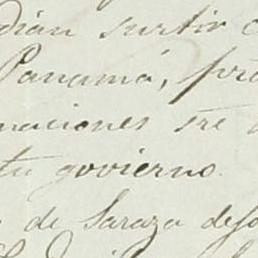 dián surtir
Panamá, pro
naciones sre
tu govierno.
de Saraza deso